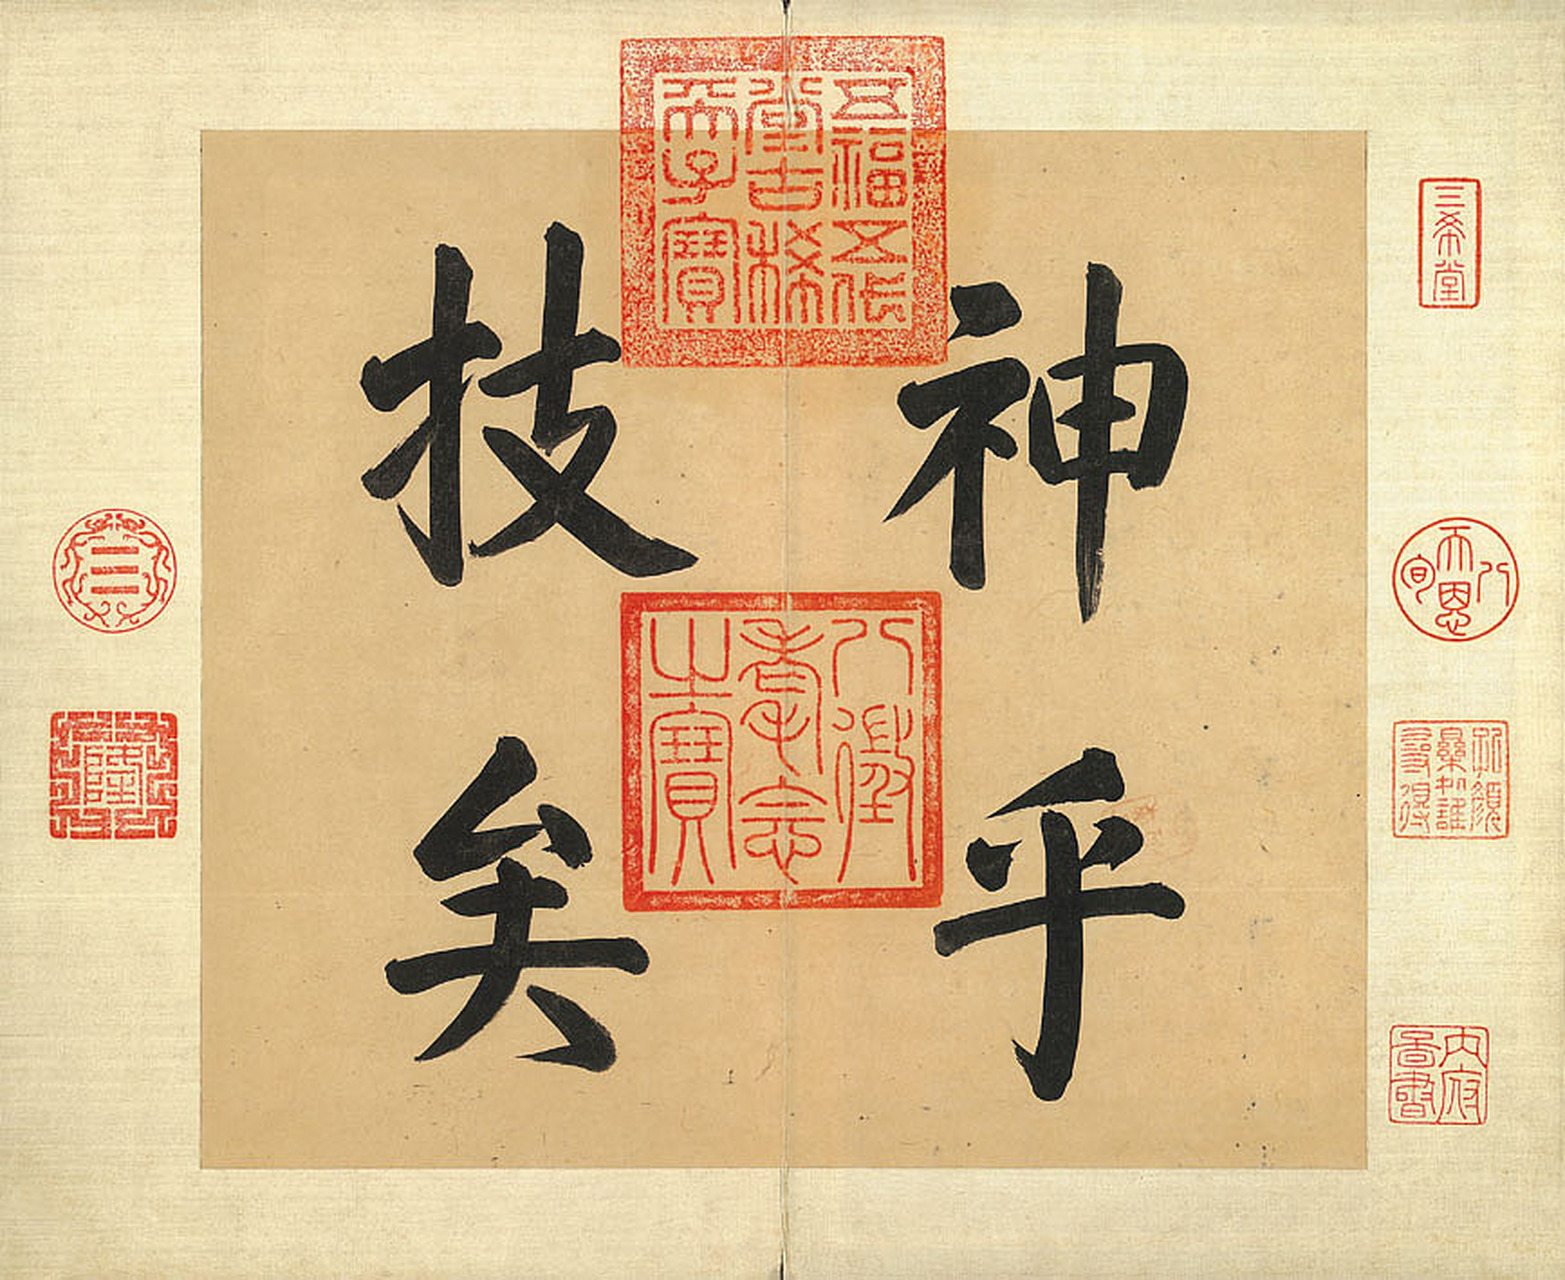 三希堂
天恩八旬
內府圖書
神乎
五福五代
堂古稀
天子寶
八徵
耄念
之寶
技矣
隆